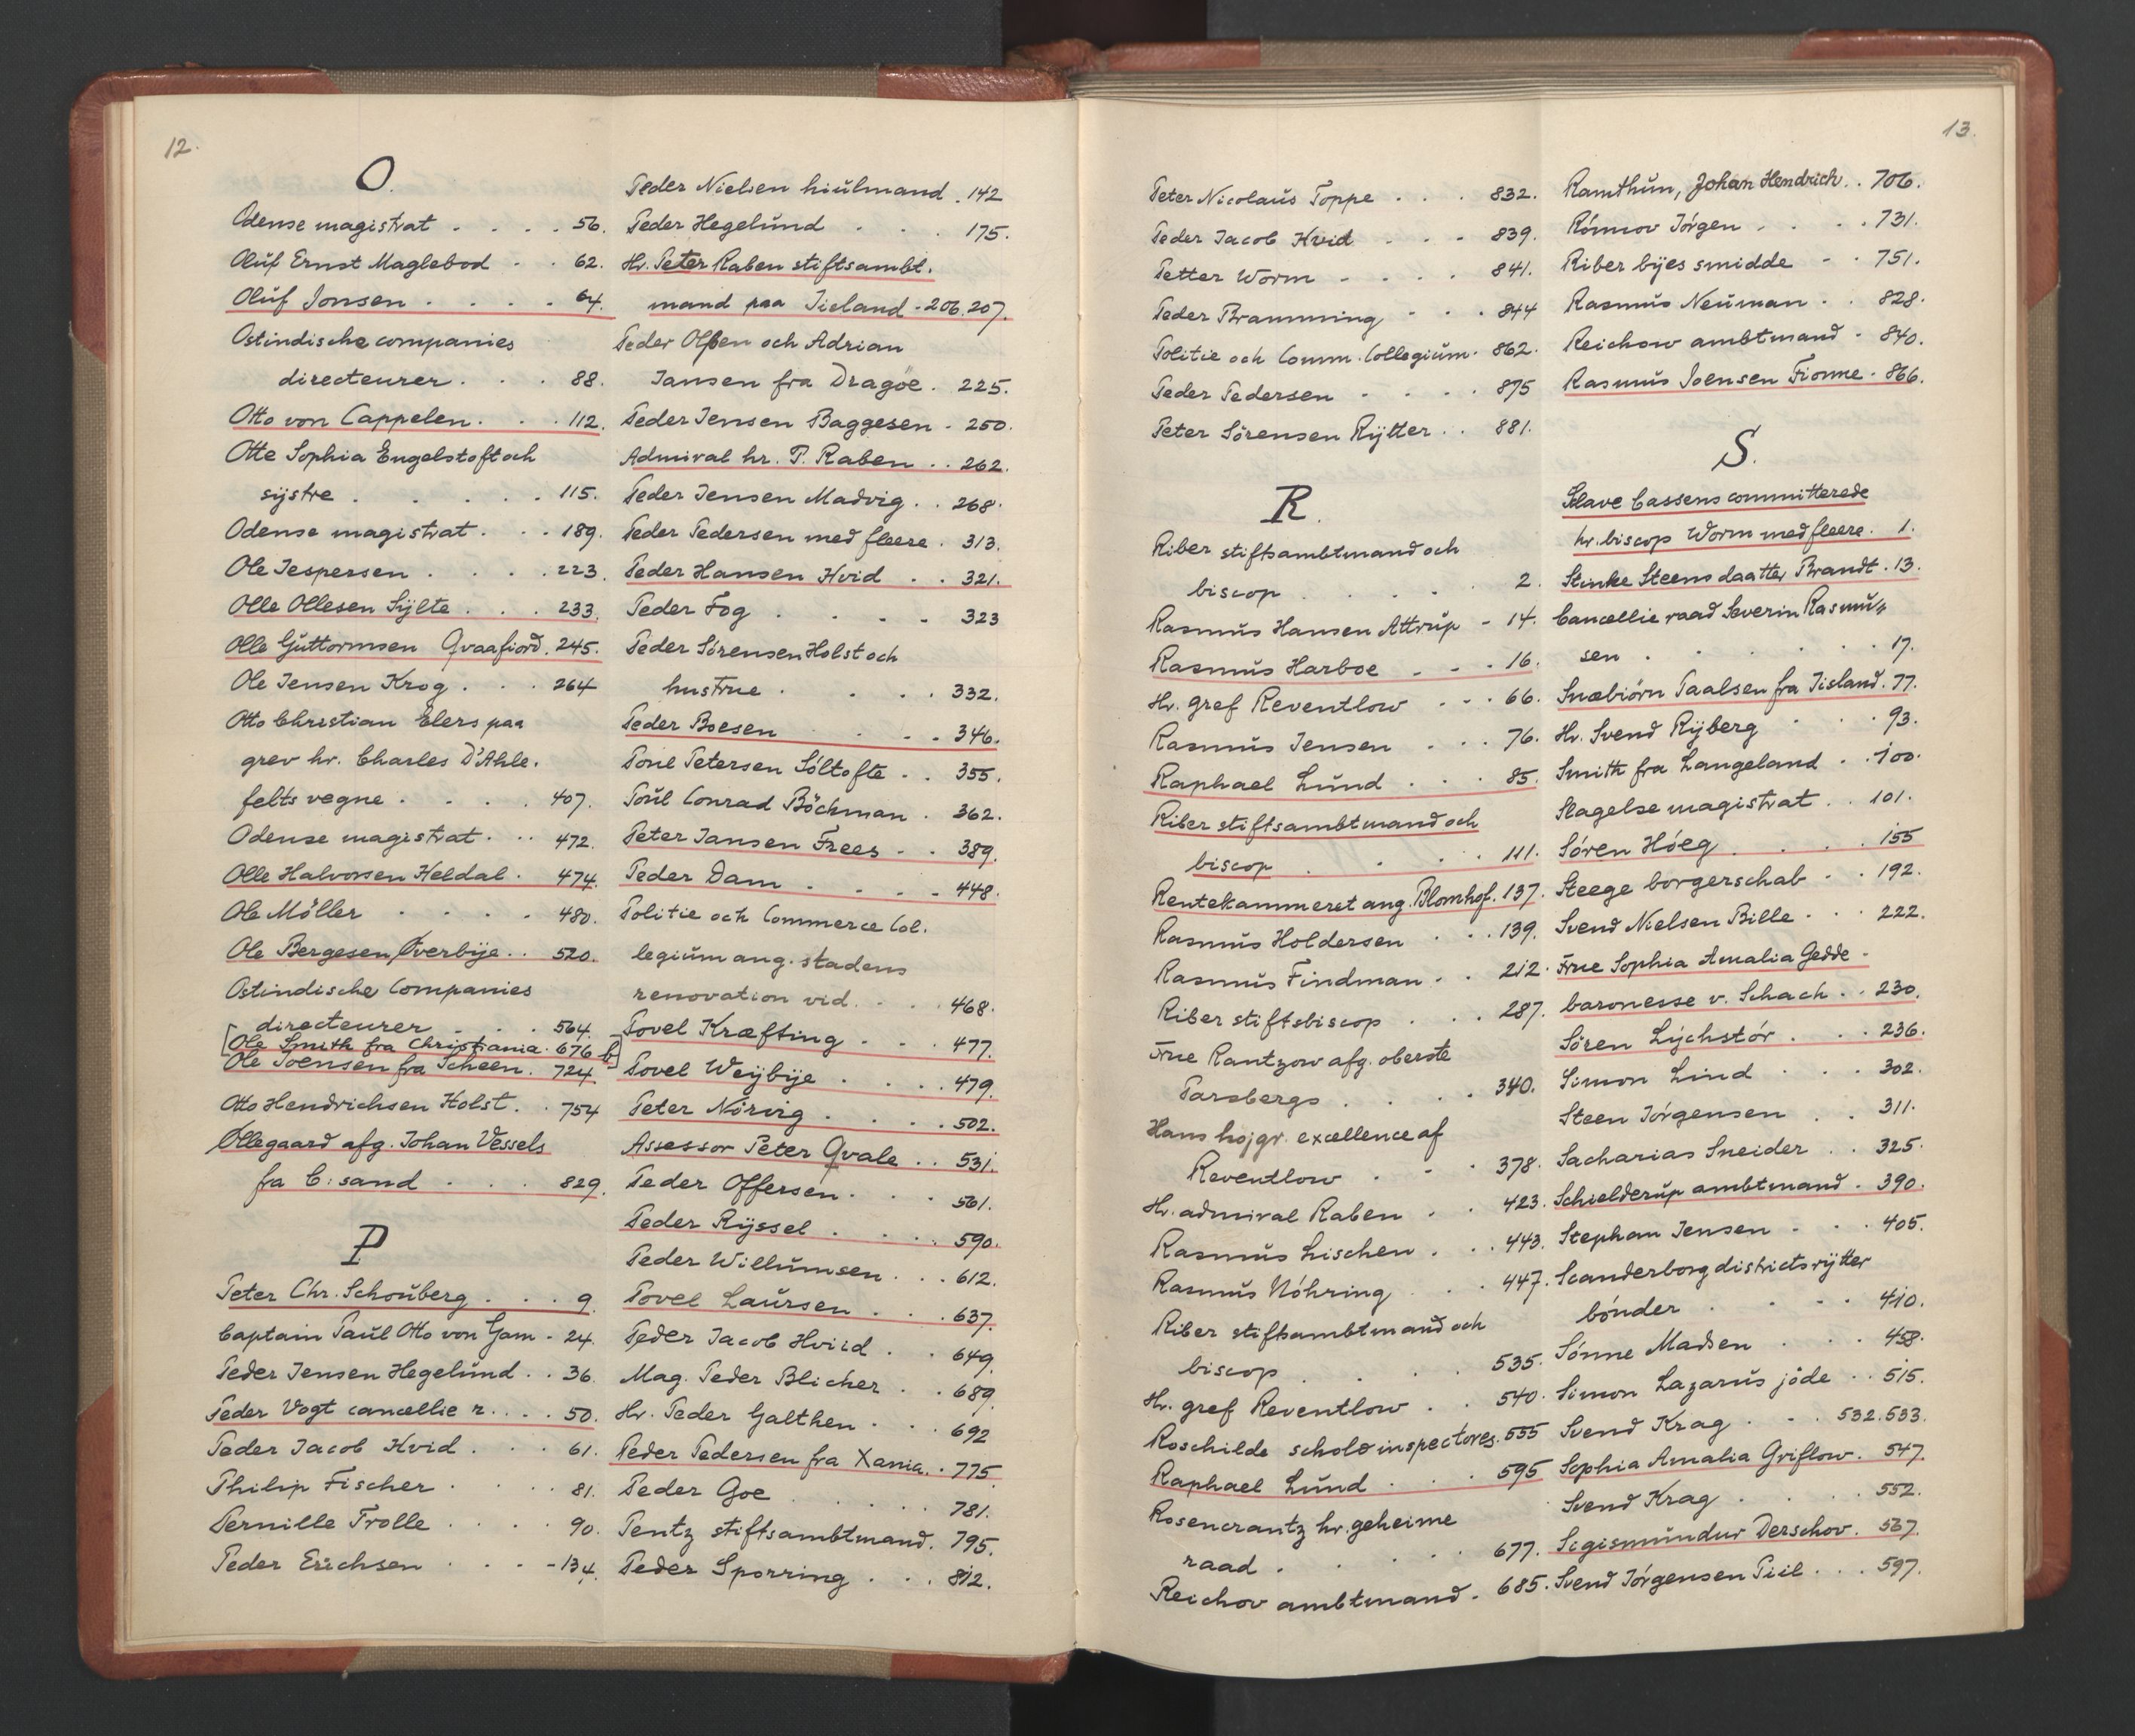 12.
O.
Odense magistrat . . . . 56.
Oluf Ernst Maglebod . . 62.
Oluf Jonsen . . . . 64.
Ostindische companies
directeurer . . . 88.
Otto von Cappelen . . . 112.
Otte Sophia Engelstoft och
systre . . . . . 115.
Odense magistrat . . . 189.
Ole Jespersen . . . . 223.
Olle Ollesen Sylte . . . 233.
Olle Guttormsen Qvaafiord . 245.
Ole Jensen Krog . . . 264
Otto Christian Elers paa
grev hr. Charles D'Ahle-
felts vegne . . . . 407.
Odense magistrat . . . 472.
Olle Halvorsen Heldal . 474.
Ole Möller . . . . 480.
Ole Bergesen Øverbye . . 520.
Ostindische Companies
directeurer . . . 564.
[Ole Smith fra Christiania . 676 b]
Ole Joensen fra Scheen . 724.
Otto Hendrichsen Holst . . 754
Øllegaard afg. Johan Vessels
fra C:sand . . . 829.
P
Peter Chr. Schouberg . . . 9.
Captain Paul Otto von Gam - 24.
Peder Jensen Hegelund . . 36.
Peder Vogt cancellie r. . . . 50.
Peder Jacob Hvid . . . 61.
Philip Fischer . . . . 81.
Pernille Trolle . . . . 90.
Peder Erichsen . . . - 134.
Peder Nielsen hiulmand . 142
Peder Hegelund . . . 175.
Hr. Peter Raben stiftsambt.
mand paa Iisland - 206.207.
Peder Olsen och Adrian
Jansen fra Dragöe . 225.
Peder Jensen Baggesen - 250.
Admiral hr. P. Raben . . 262.
Peder Jensen Madvig . . 268.
Peder Pedersen med fleere . 313.
Peder Hansen Hvid . . 321.
Peder Fog . . . . 323
Peder Sörensen Holst och
hustrue . . . . 332.
Peder Boesen . . . 346.
Poul Petersen Söltofte . . 355.
Poul Conrad Böckman . 362.
Peter Jansen Frees . . 389.
Peder Dam . . . . 448.
Politie och Commerce Col.
legium ang. stadens
renovation vid. . . . 468.
Povel Kræfting . . . 477.
Povel Weybye . . . . 479.
Peter Nörvig . . . . 502.
Assessor Peter Qvale . . 531.
Peder Offersen . . . 561.
Peder Ryssel . . . . 590.
Peder Willumsen . . . 612.
Povel Laursen . . . 637.
Peder Jacob Hviid . . 649.
Mag. Peder Blicher . . 689.
Hr. Peder Galthen . . . 692
Peder Pedersen fra Xania. . 775
Peder Goe . . . . . 781.
Pentz stiftsambtmand . 795.
Peder Sporring . . . 812.
13.
Peter Nicolaus Toppe . . . 832.
Peder Jacob Hvid . . . 839.
Petter Worm . . . . 841.
Peder Bramming . . . 844
Politie och Comm. Collegium . 862.
Peder Pedersen . . . . 875
Peter Sörensen Rytter . . 881.
R.
Riber stiftsambtmand och
biscop . . . . . 2.
Rasmus Hansen Attrup - 14.
Rasmus Harboe . . . 16.
Hr. gref Reventlow . . . 66.
Rasmus Jensen . . . 76.
Raphael Lund . . . 85.
Riber stiftsambtmand och
biscop . . . . 111.
Rentekammeret ang. Blomhof. 137.
Rasmus Holdersen . . . 139.
Rasmus Findman . . 212.
Riber stiftsbiscop . . . 287.
Frue Rantzow afg. oberste
Parsbergs . . . . 340.
Hans höjgr. excellence af
Reventlow . . . 378.
Hr. admiral Raben . . 423.
Rasmus Lischen . . . 443.
Rasmus Nöhring . . 447.
Riber stiftsambtmand och
biscop . . . . 535.
Hr. gref Reventlow . . 540.
Roschilde schole inspectores. 555
Raphael Lund . . . 595
Rosencrantz hr. geheime
raad . . . . . 677.
Reichov ambtmand . 685.
Ramthun, Johan Hendrich . . 706.
Römov Jörgen . . . . 731.
Riber byes smidde . . 751.
Rasmus Neuman . . 828.
Reichow ambtmand . 840.
Rasmus Joensen Fionne . 866.
S.
Slave Cassens committerede
hr. biscop Worm med fleere . 1.
Stinke Steens daatter Brandt . 13.
Cancellie raad Severin Rasmu„
sen . . . . . . 17.
Snæbiörn Paalsen fra Iisland . 77.
Hr. Svend Ryberg . . . 93.
Smith fra Langeland . . 100.
Slagelse magistrat . . 101.
Sören Höeg . . . . 155
Steege borgerschab . . 192.
Svend Nielsen Bille . . . 222.
Frue Sophia Amalia Gedde -
baronesse v. Schach . . 230.
Sören Lychstör . . . 236.
Simon Lind . . . 302.
Steen Jörgensen . . 311.
Sacharias Sneider . . 325.
Schielderup ambtmand . 390.
Stephan Jensen . . . 405.
Scanderborg districts rytter
bönder . . . . 410.
Sönne Madsen . . . 458.
Simon Lazarus jöde . . 515.
Svend Krag . . . 532.533.
Sophia Amalia Griflow . 547.
Svend Krag . . . . 552.
Sigismundur Derschov . 567.
Svend Jörgensen Piil . . . 597.